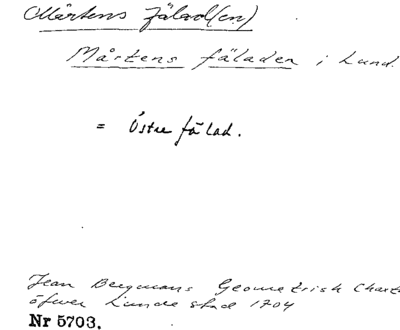 Mårtens fälad(en)
Mårtens fäladen i Lund.
= Östre fälad.
Jean Bergmans Geometrisk Chart
öfwer Lunde stad 1704
Nr 5703.